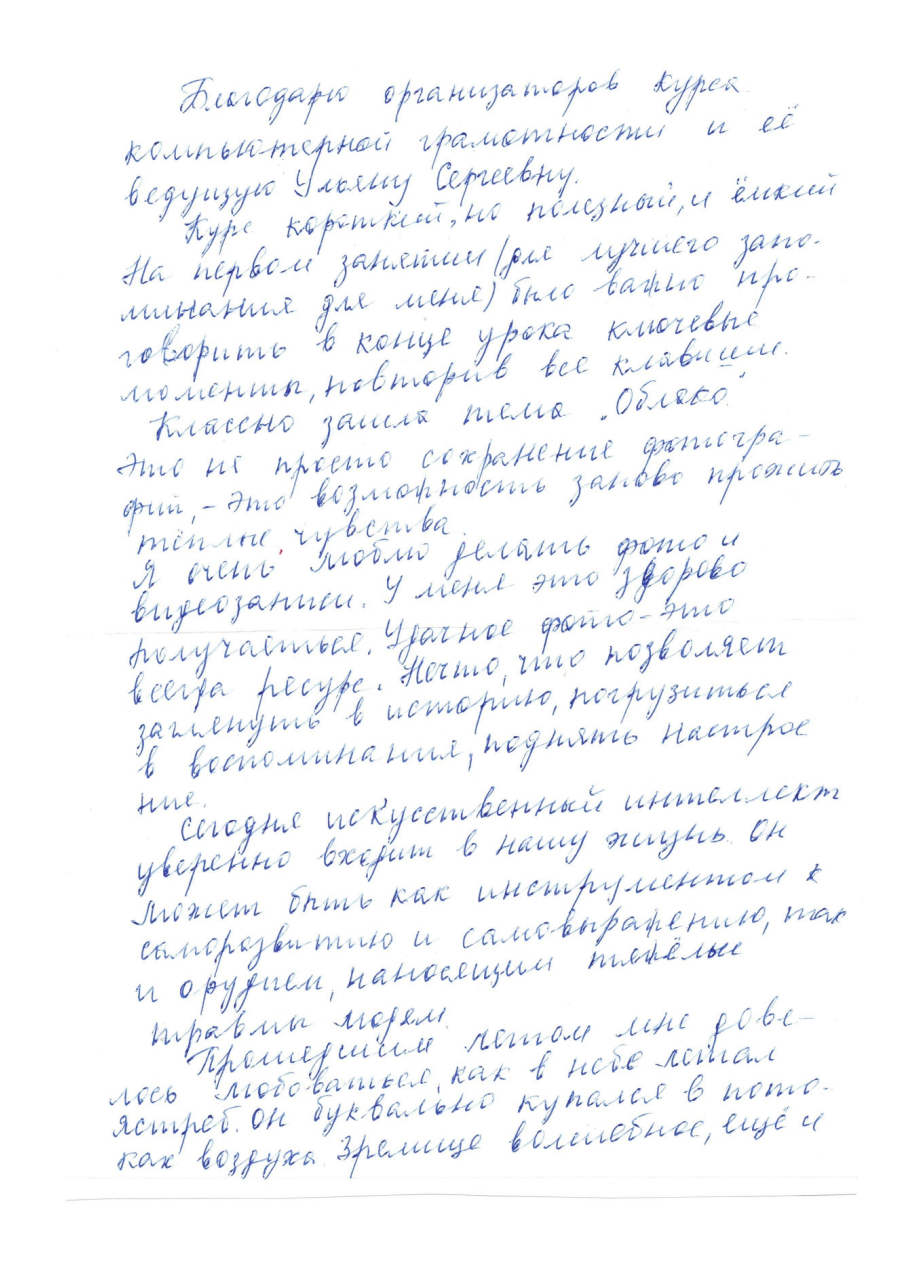 Благодарю организаторов курса
компьютерной грамотности и её
ведущую Ульяну Сергеевну.
Курс короткий, но полезный, и ёмкий
На первом занятии (для лучшего запо-
минания для меня) было важно про-
говорить в конце урока ключевые
моменты, повторив все клавиши.
Классно зашла тема „Облако".
Это не просто сохранение фотогра-
фий, - это возможность заново прожить
тёплые чувства.
Я очень люблю делать фото и
видеозаписи. У меня это здорово
получаеться. Удачное фото - это
всегда ресурс. Нечто, что позволяет
заглянуть в историю, погрузиться
в воспоминания, поднять настрое
ние.
Сегодня искусственный интеллект
уверенно входит в нашу жизнь. Он
может быть как инструментом к
саморазвитию и самовыражению, так
и орудием, наносящим тяжёлые
травмы людям.
Прошедшим летом мне дове-
лось любоваться, как в небе летал
ястреб. Он буквально купался в пото-
ках воздуха. Зрелище волшебное, ещё и